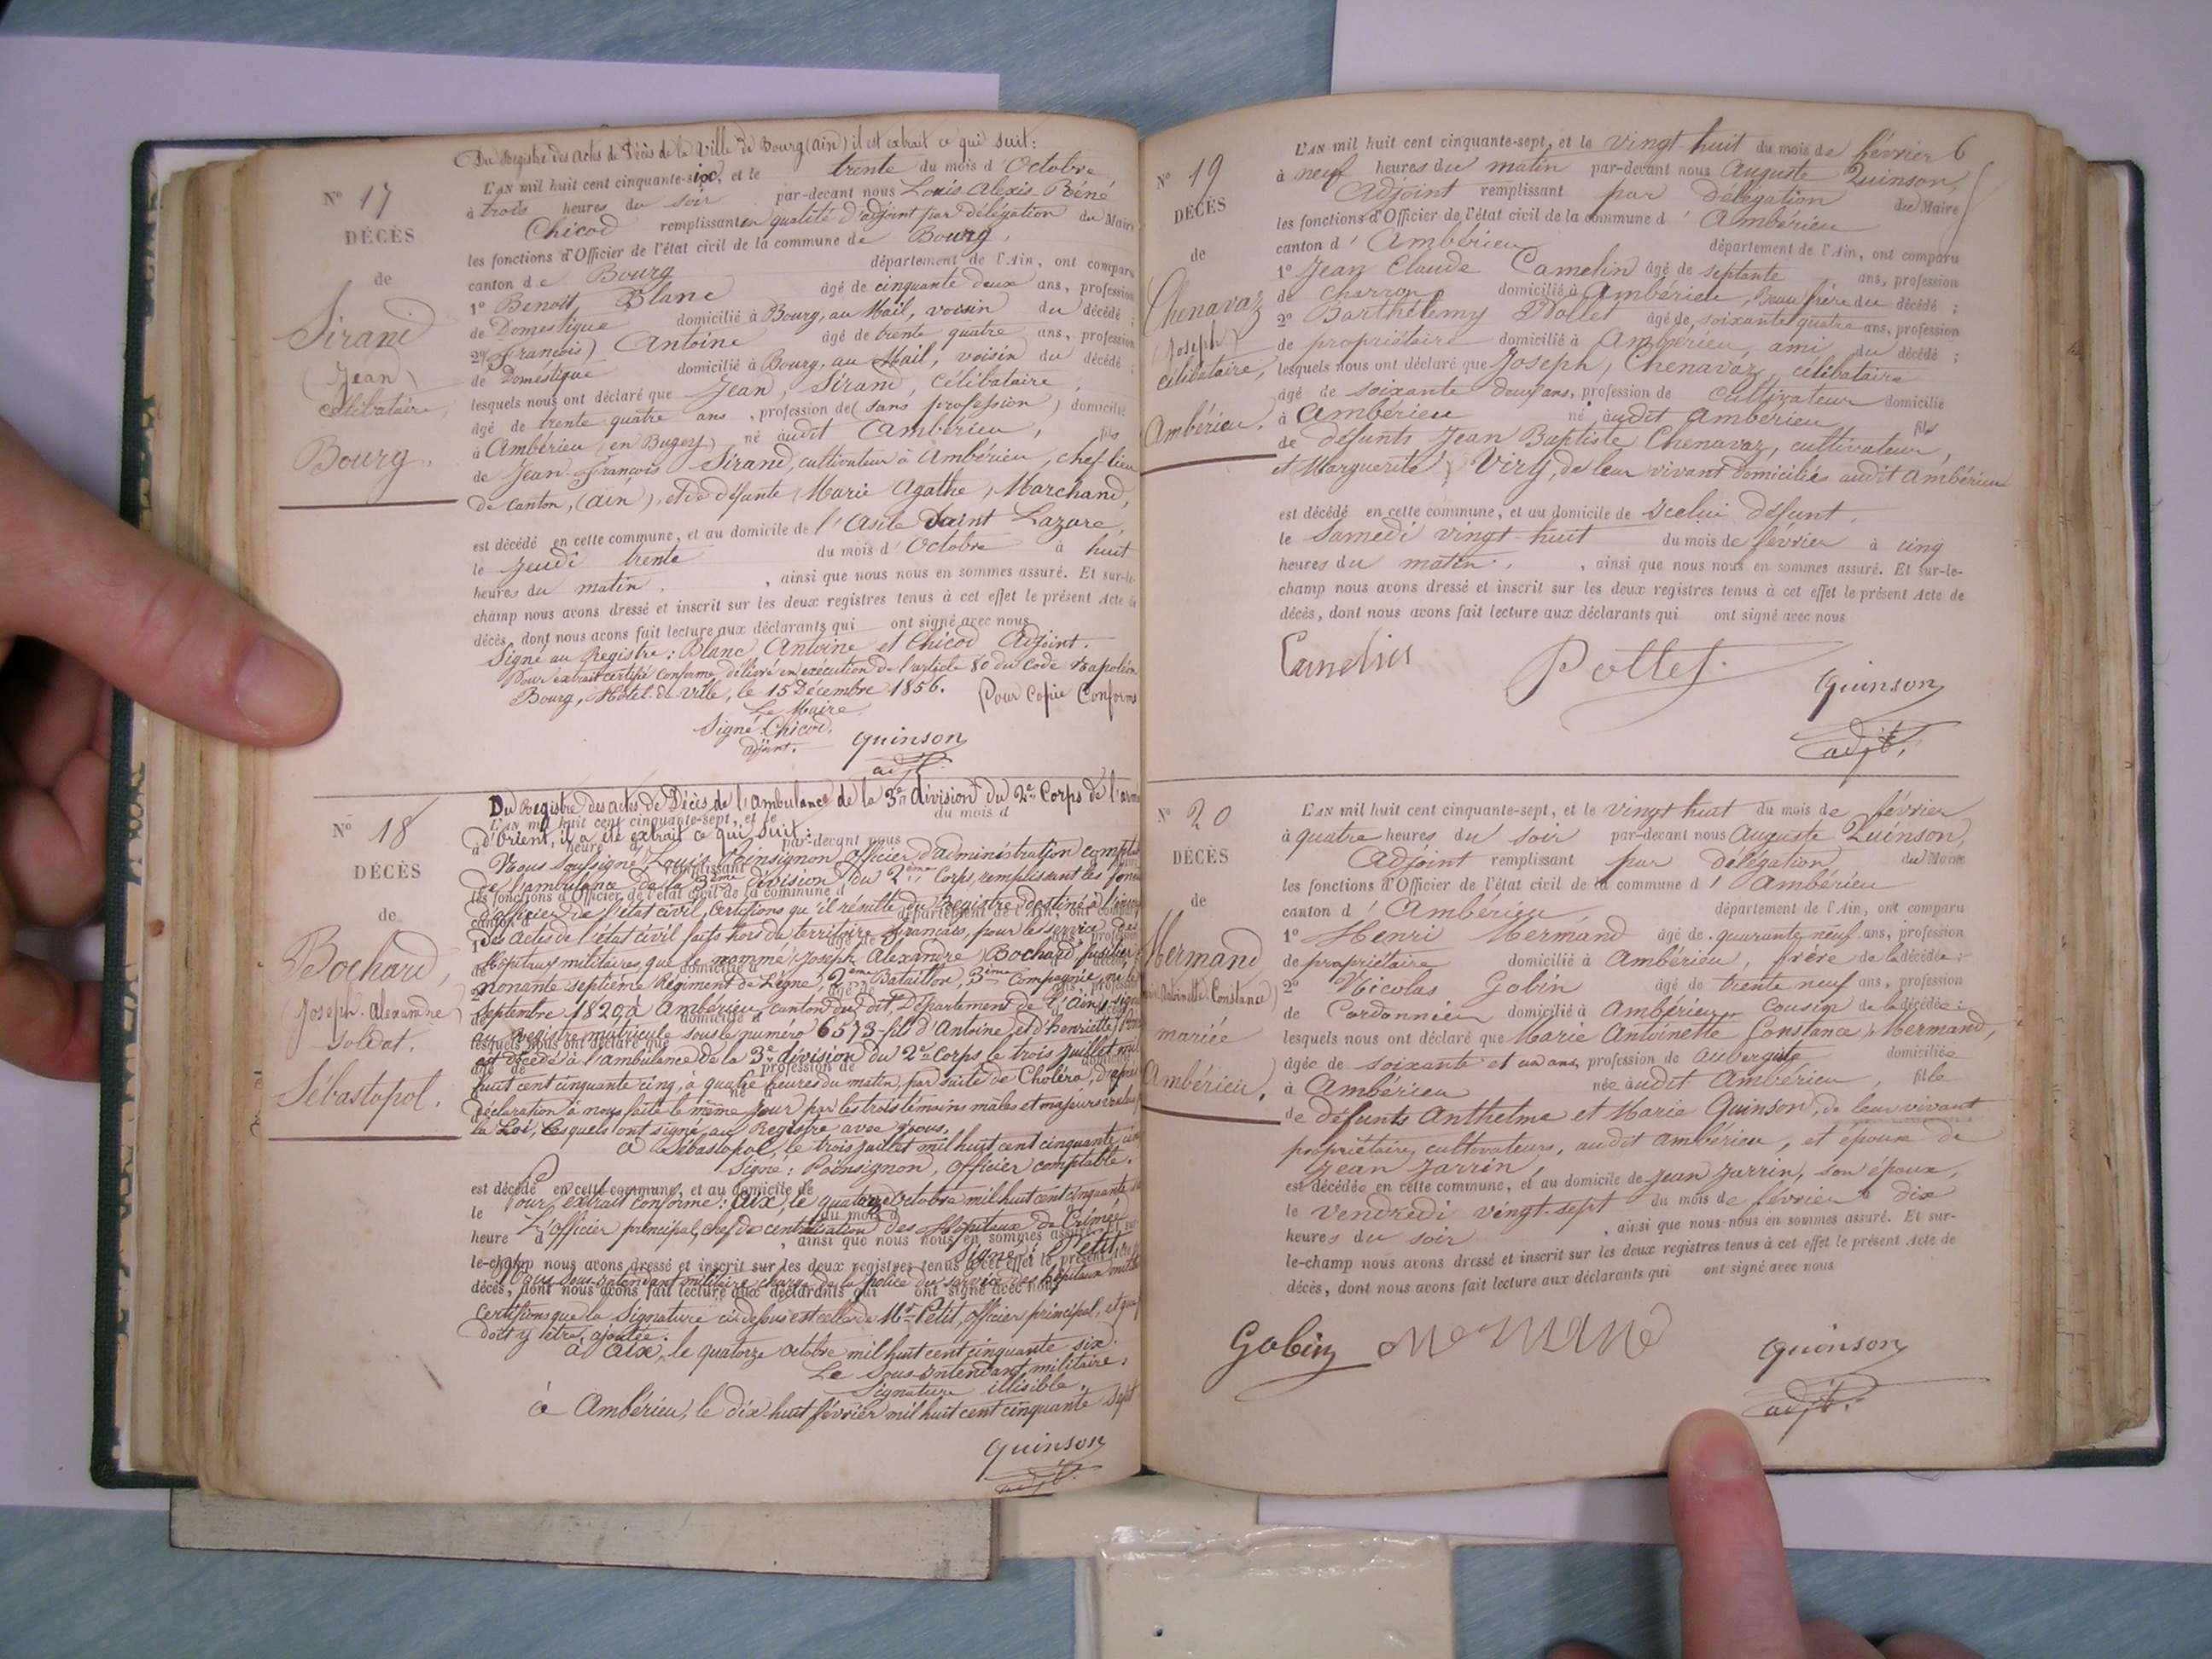 Du Registre des actes de Décès de la Ville de Bourg (ain) il est extrait ce qui suit:
N° 17
DÉCÈS
de
Sirand
(Jean)
célibataire,
Bourg.
L'AN mil huit cent cinquante-six, et le trente du mois d'Octobre
à trois heures du soir par-devant nous Louis Alexis Béné
Chicod remplissant en qualité d'adjoint par délégation du Maire
les fonctions d'Officier de l'état civil de la commune de Bourg,
canton de Bourg département de l'Ain, ont comparu
1° Benoit Blanc âgé de cinquante deux ans, profession
de Domestique domicilié à Bourg, au Mail, voisin du décédé ;
2° (François) Antoine âgé de trente quatre ans, profession
de Domestique domicilié à Bourg, au Mail, voisin du décédé ;
lesquels nous ont déclaré que Jean, Sirand, célibataire,
âgé de trente quatre ans, profession de (sans profession) domicilié
à Ambérieu (en Bugey) né audit Ambérieu, fils
de Jean-François Sirand, cultivateur à Ambérieu, chef-lieu
de canton, (ain), et de défunte Marie Agathe, Marchand,
est décédé en cette commune, et au domicile de l'Asile Saint Lazare,
le Jeudi trente du mois d'Octobre à huit
heures du matin. , ainsi que nous nous en sommes assuré. Et sur-le-
champ nous avons dressé et inscrit sur les deux registres tenus à cet effet le présent Acte de
décès, dont nous avons fait lecture aux déclarants qui ont signé avec nous
Signé au Registre: Blanc Antoine et Chicod Adjoint.
Pour extrait certifié conforme délivré en exécution de l'article 80 du Code Napoléon
Bourg, Hôtel-de-Ville, le 15 Décembre 1856. Pour Copie Conforme
Le Maire
Signé: Chicod,
adjoint. Quinson
adjt.
N° 18
DÉCÈS
de
Bochard,
(Joseph-Alexandre)
soldat.
Sébastopol.
Du Registre des actes de Décès de l'ambulance de la 3e division du 2e Corps de l'armée
L'AN mil huit cent cinquante-sept, et le du mois d
d'Orient, il a été extrait ce qui suit:
à heure d par-devant nous
Nous soussigné Louis Poinsignon officier d'administration comptable
remplissant
de l'ambulance de la 3ème division du 2ème Corps, remplissant les fonctions
les fonctions d'Officier de l'état civil de la commune d
d'officier de l'état civil, certifions qu'il résulte du Registre destiné à l'inscription
canton d département de l'Ain, ont comparu
des actes de l'état civil faits hors du territoire Français, pour le service des
1° âgé de ans, profession
Hôpitaux militaires, que le nommé (Joseph Alexandre) Bochard, fusilier
domicilié à
nonante septième Régiment de Ligne, 2ème Bataillon, 3ème Compagnie, né le
2° âgé de ans, profession
septembre 1820, à Ambérieu, canton du dit, Département de l'Ain, signalé
de domicilié à
au registre matricule sous le numéro 6573 fils d'Antoine et d'henriette
lesquels nous ont déclaré que
est décédé à l'ambulance de la 3e division du 2e Corps le trois Juillet mil
âgé de profession de
huit cent cinquante cinq, à quatre heures du matin, par suite de Choléra, d'après
né à
déclaration à nous faite le même jour par les trois témoins mâles et majeurs voulus
la Loi, lesquels ont signé au Registre avec nous.
à Sébastopol, le trois Juillet mil huit cent cinquante cinq
Signé: Poinsignon, officier comptable.
est décédé en cette commune, et au domicile de
Pour extrait conforme: aix, le quatorze Octobre mil huit cent cinquante six
le du mois d
L'officier principal, chef de centralisation des Hôpitaux de Crimée
heure d , ainsi que nous nous en sommes assuré. Et sur-
Signé: Petit
le-champ nous avons dressé et inscrit sur les deux registres tenus à cet effet le présent
Nous sous-intendant militaire chargé de la police du service des hôpitaux
décès, dont nous avons fait lecture aux déclarants qui ont signé avec nous
certifions que la Signature ci-dessus est celle de Mr Petit, officier principal, et que
doit y être ajoutée.
à Aix, le quatorze octobre mil huit cent cinquante six.
Le sous-Intendant militaire,
Signature illisible.
à Ambérieu, le dix-huit février mil huit cent cinquante sept
Quinson
adjt.
6
N° 19
DÉCÈS
de
Chenavaz
(Joseph)
célibataire,
Ambérieu.
L'AN mil huit cent cinquante-sept, et le vingt-huit du mois de février
à neuf heures du matin par-devant nous Auguste Quinson,
Adjoint remplissant par délégation du Maire
les fonctions d'Officier de l'état civil de la commune d'Ambérieu
canton d'Ambérieu département de l'Ain, ont comparu
1° Jean Claude Camelin âgé de septante ans, profession
de charron domicilié à Ambérieu, Beau frère du décédé ;
2° Barthélemy Pollet âgé de soixante quatre ans, profession
de propriétaire domicilié à Ambérieu, ami du décédé ;
lesquels nous ont déclaré que Joseph, Chenavaz, célibataire
âgé de soixante deux ans, profession de cultivateur domicilié
à Ambérieu né audit Ambérieu fils
de défunts Jean Baptiste Chenavaz, cultivateur,
et Marguerite Viry, de leur vivant domiciliés audit Ambérieu
est décédé en cette commune, et au domicile de icelui défunt,
le Samedi vingt-huit du mois de février à cinq
heures du matin. , ainsi que nous nous en sommes assuré. Et sur-le-
champ nous avons dressé et inscrit sur les deux registres tenus à cet effet le présent Acte de
décès, dont nous avons fait lecture aux déclarants qui ont signé avec nous
Camelin Pollet Quinson
adjt.
N° 20
DÉCÈS
de
Mermand
(Marie Antoinette Constance)
mariée
Ambérieu.
L'AN mil huit cent cinquante-sept, et le vingt huit du mois de février
à quatre heures du soir par-devant nous Auguste Quinson,
Adjoint remplissant par délégation du Maire
les fonctions d'Officier de l'état civil de la commune d'Ambérieu
canton d'Ambérieu, département de l'Ain, ont comparu
1° Henri Mermand âgé de quarante neuf ans, profession
de propriétaire domicilié à Ambérieu, frère de la décédée ;
2° Nicolas Gobin âgé de trente neuf ans, profession
de Cordonnier domicilié à Ambérieu, cousin de la décédée ;
lesquels nous ont déclaré que Marie Antoinette Constance, Mermand,
âgée de soixante et un ans, profession de aubergiste domiciliée
à Ambérieu née audit Ambérieu, fille
de défunts Anthelme et Marie Quinson, de leur vivant
propriétaires cultivateurs, audit Ambérieu, et épouse de
Jean Jarrin,
est décédée en cette commune, et au domicile de Jean Jarrin, son époux,
le Vendredi vingt-sept du mois de février à dix
heures du soir , ainsi que nous nous en sommes assuré. Et sur-
le-champ nous avons dressé et inscrit sur les deux registres tenus à cet effet le présent Acte de
décès, dont nous avons fait lecture aux déclarants qui ont signé avec nous
Gobin Mermand Quinson
adjt.